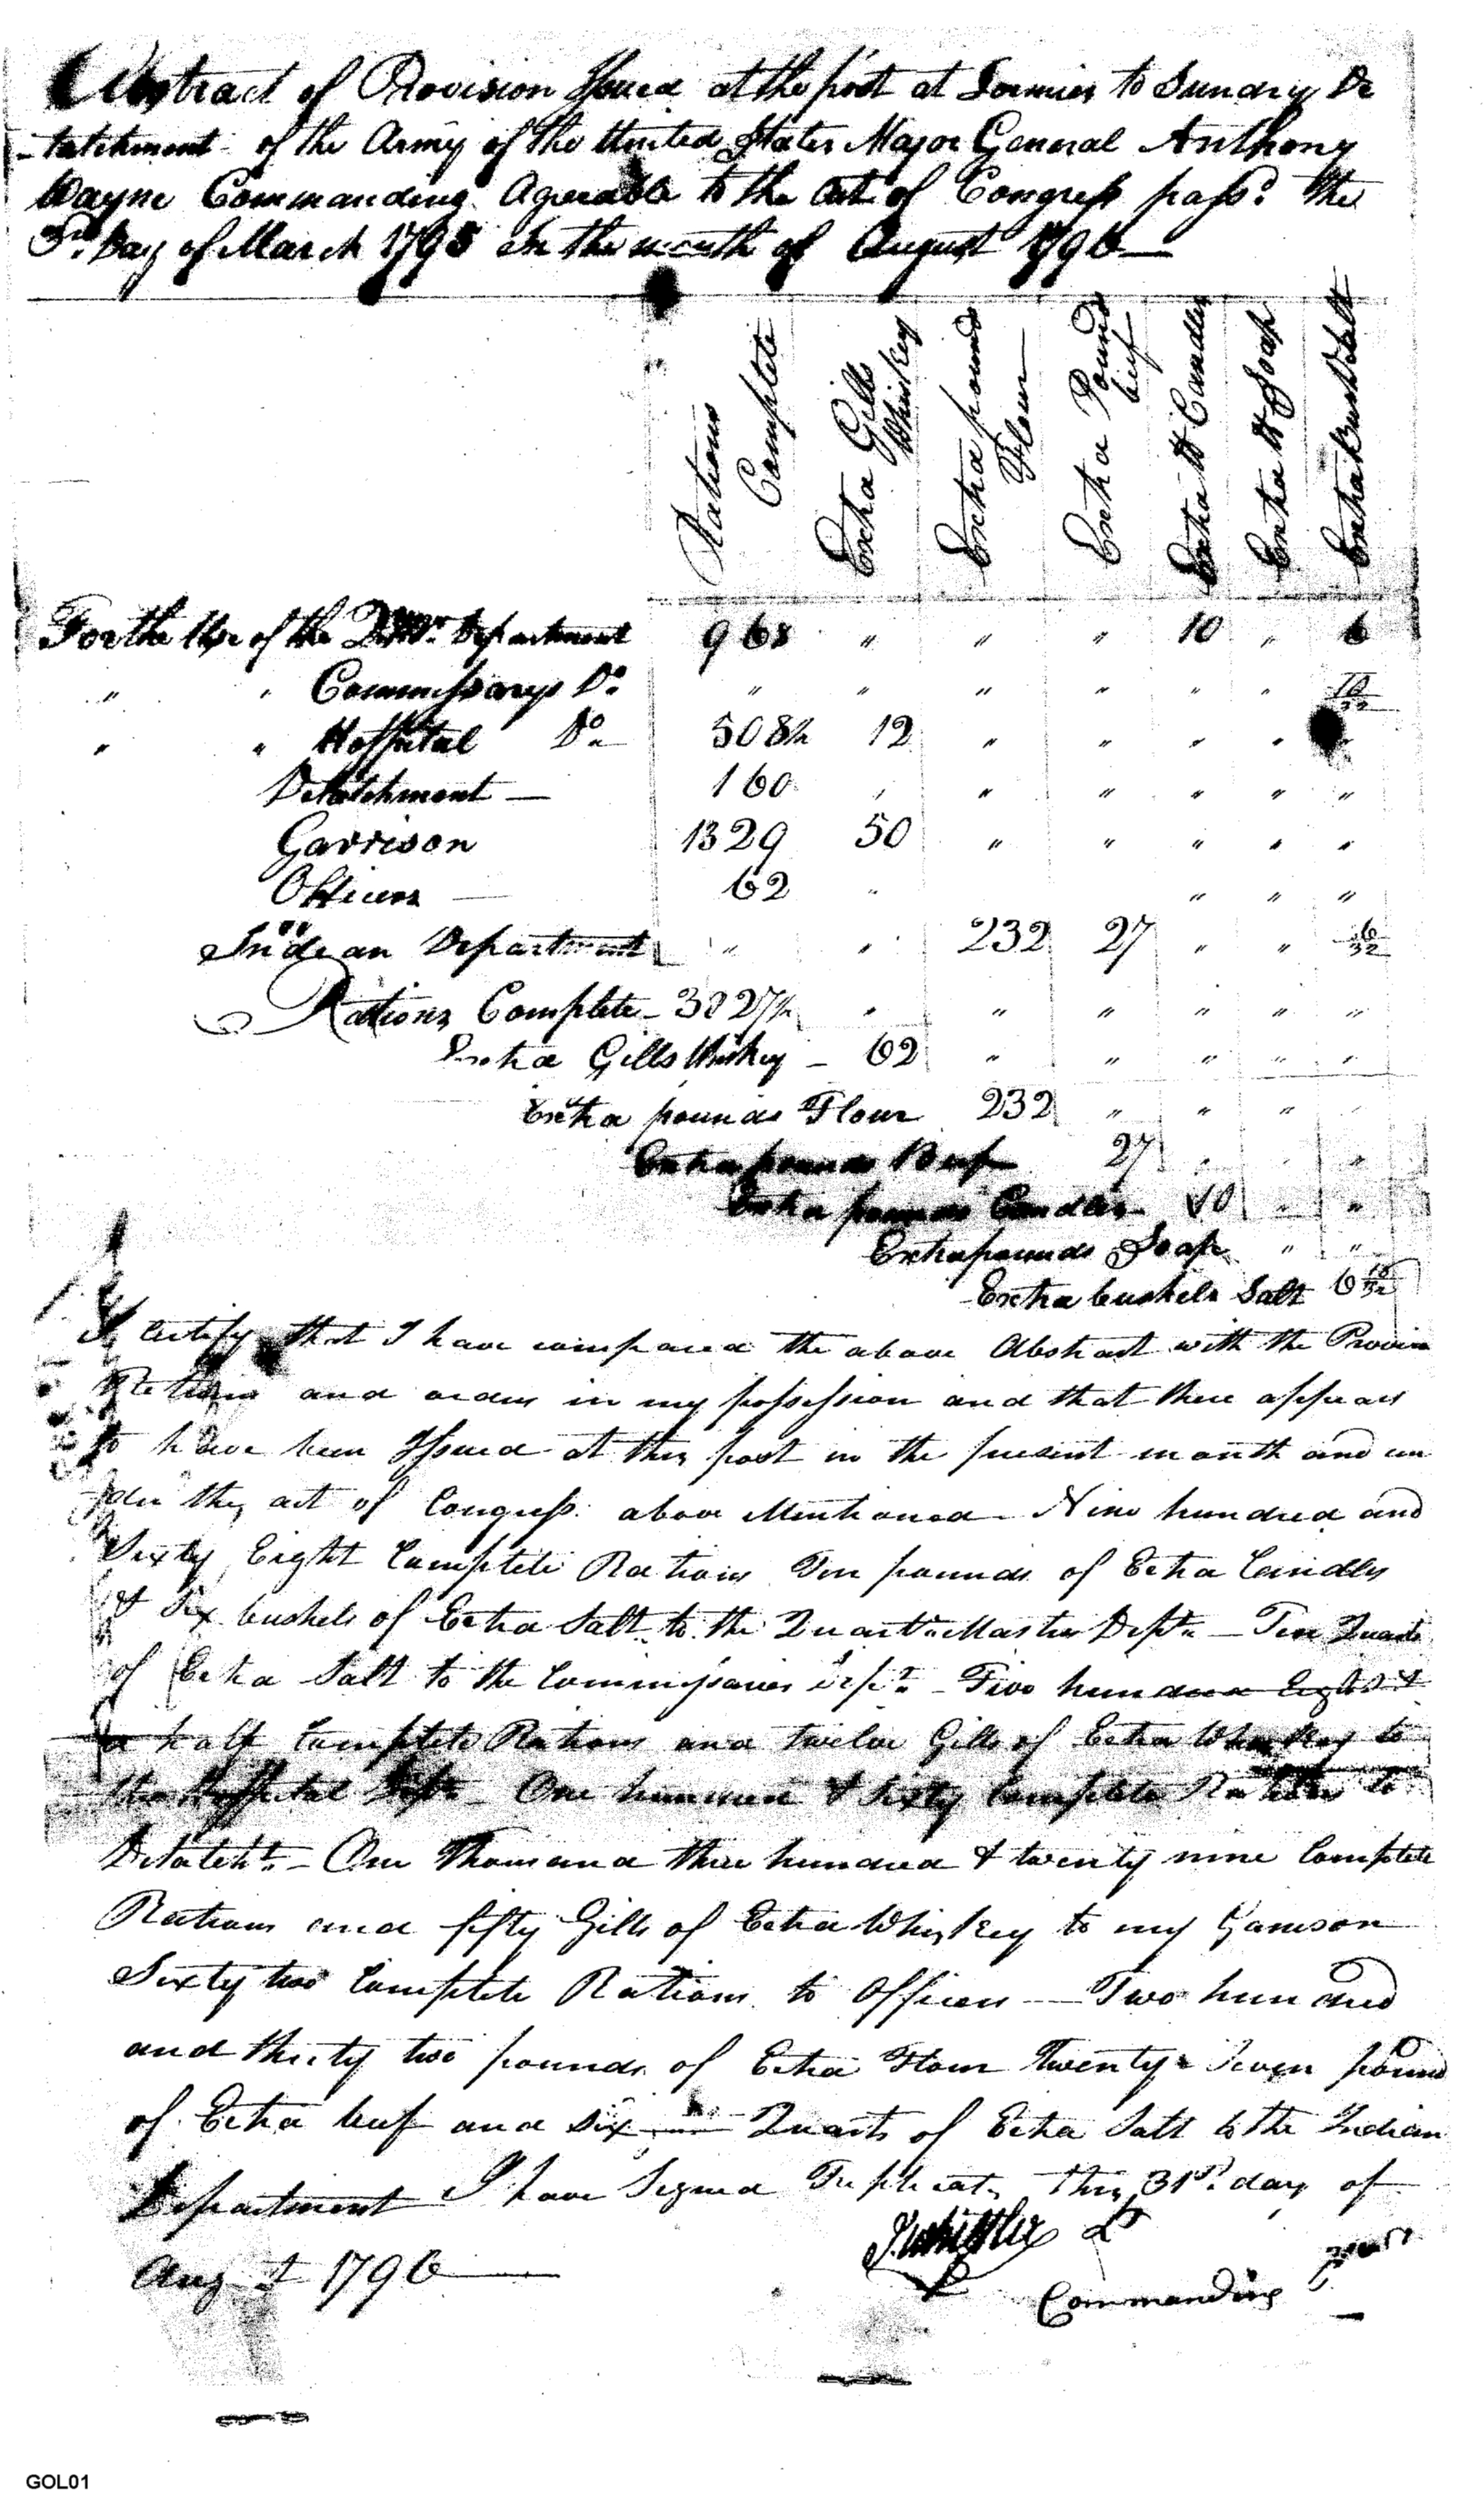 Abstract of Provision Issued at the post at Lormies to Sundry De
-tatchment of the Army of the United States Major General Anthony
Wayne Commanding Agreeable to the Act of Congress pass.d the
3rd Day of March 1795 In the month of August 1796
Rations Complete
Extra Gills Whiskey
Extra pounds Flour
Extra Pounds beef
Extra lb Candles
Extra lb Soap
Extra Bush.l Salt
For the Use of the Department 968 " " " 10 " 6
" " Commissarys Do " " " " " " 10/32
" " Hosspital Do 508½ 12 " " " "
Detatchment 160 " " " " " "
Garrison 1329 50 " " " " "
Officers 62 " " " "
Indean Department " " 232 27 " " 6/32
Rations Complete 3027½ " " " " " "
Extra Gills Whiskey 62 " " " " "
Extra pounds Flour 232 " " " "
Extra pounds Beef 27 " " "
Extra pounds Candles 10 " "
Extra pounds Soap " "
Extra bushels Salt 6 16/32
I Certify that I have compared the above Abstract with the Provision
Returns and orders in my possession and that there appears
to have been Issued at this post in the present month and un
der the act of Congress above Mentioned Nine hundred and
Sixty Eight Complete Rations Ten pounds of Extra Candles
& Six bushels of Extra Salt to the Quart.r Master Dept. Ten Quarts
of Extra Salt to the Commissaries Dept. Five hundred Eight &
a half Complete Rations and twelve Gills of Extra Whiskey to
the Hosspital Dept. One hundred & Sixty Complete Rations to
Detatcht. One Thousand three hundred & twenty nine Complete
Rations and fifty Gills of Extra Whiskey to my Garrison
Sixty two Complete Rations to Officers Two hundred
and thirty two pounds of Extra Flour Twenty Seven pound
of Extra beef and Six Quarts of Extra Salt to the Indian
Department I have Signed Triplicate this 31st day of
August 1796
J Whistler Lt
Commanding
GOL01